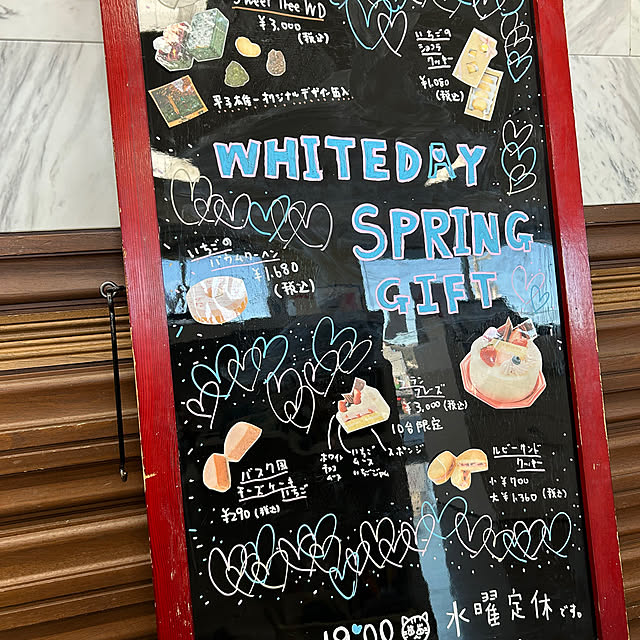 Sweet Tree WD
¥3,000
(税込)
いちごの
ショコラ
クッキー
¥1,080
(税込)
WHITEDAY
SPRING
GIFT
いちごの
バウムクーヘン
¥1,680
(税込)
ブレーズ
¥3,000(税込)
10台限定
ホワイト
チョコ
ムース
いちご
ムース
スポンジ
バスク風
チーズケーキ
いちご
¥290(税込)
ルビーサンド
クッキー
小¥700
大¥1,360(税込)
水曜定休です。